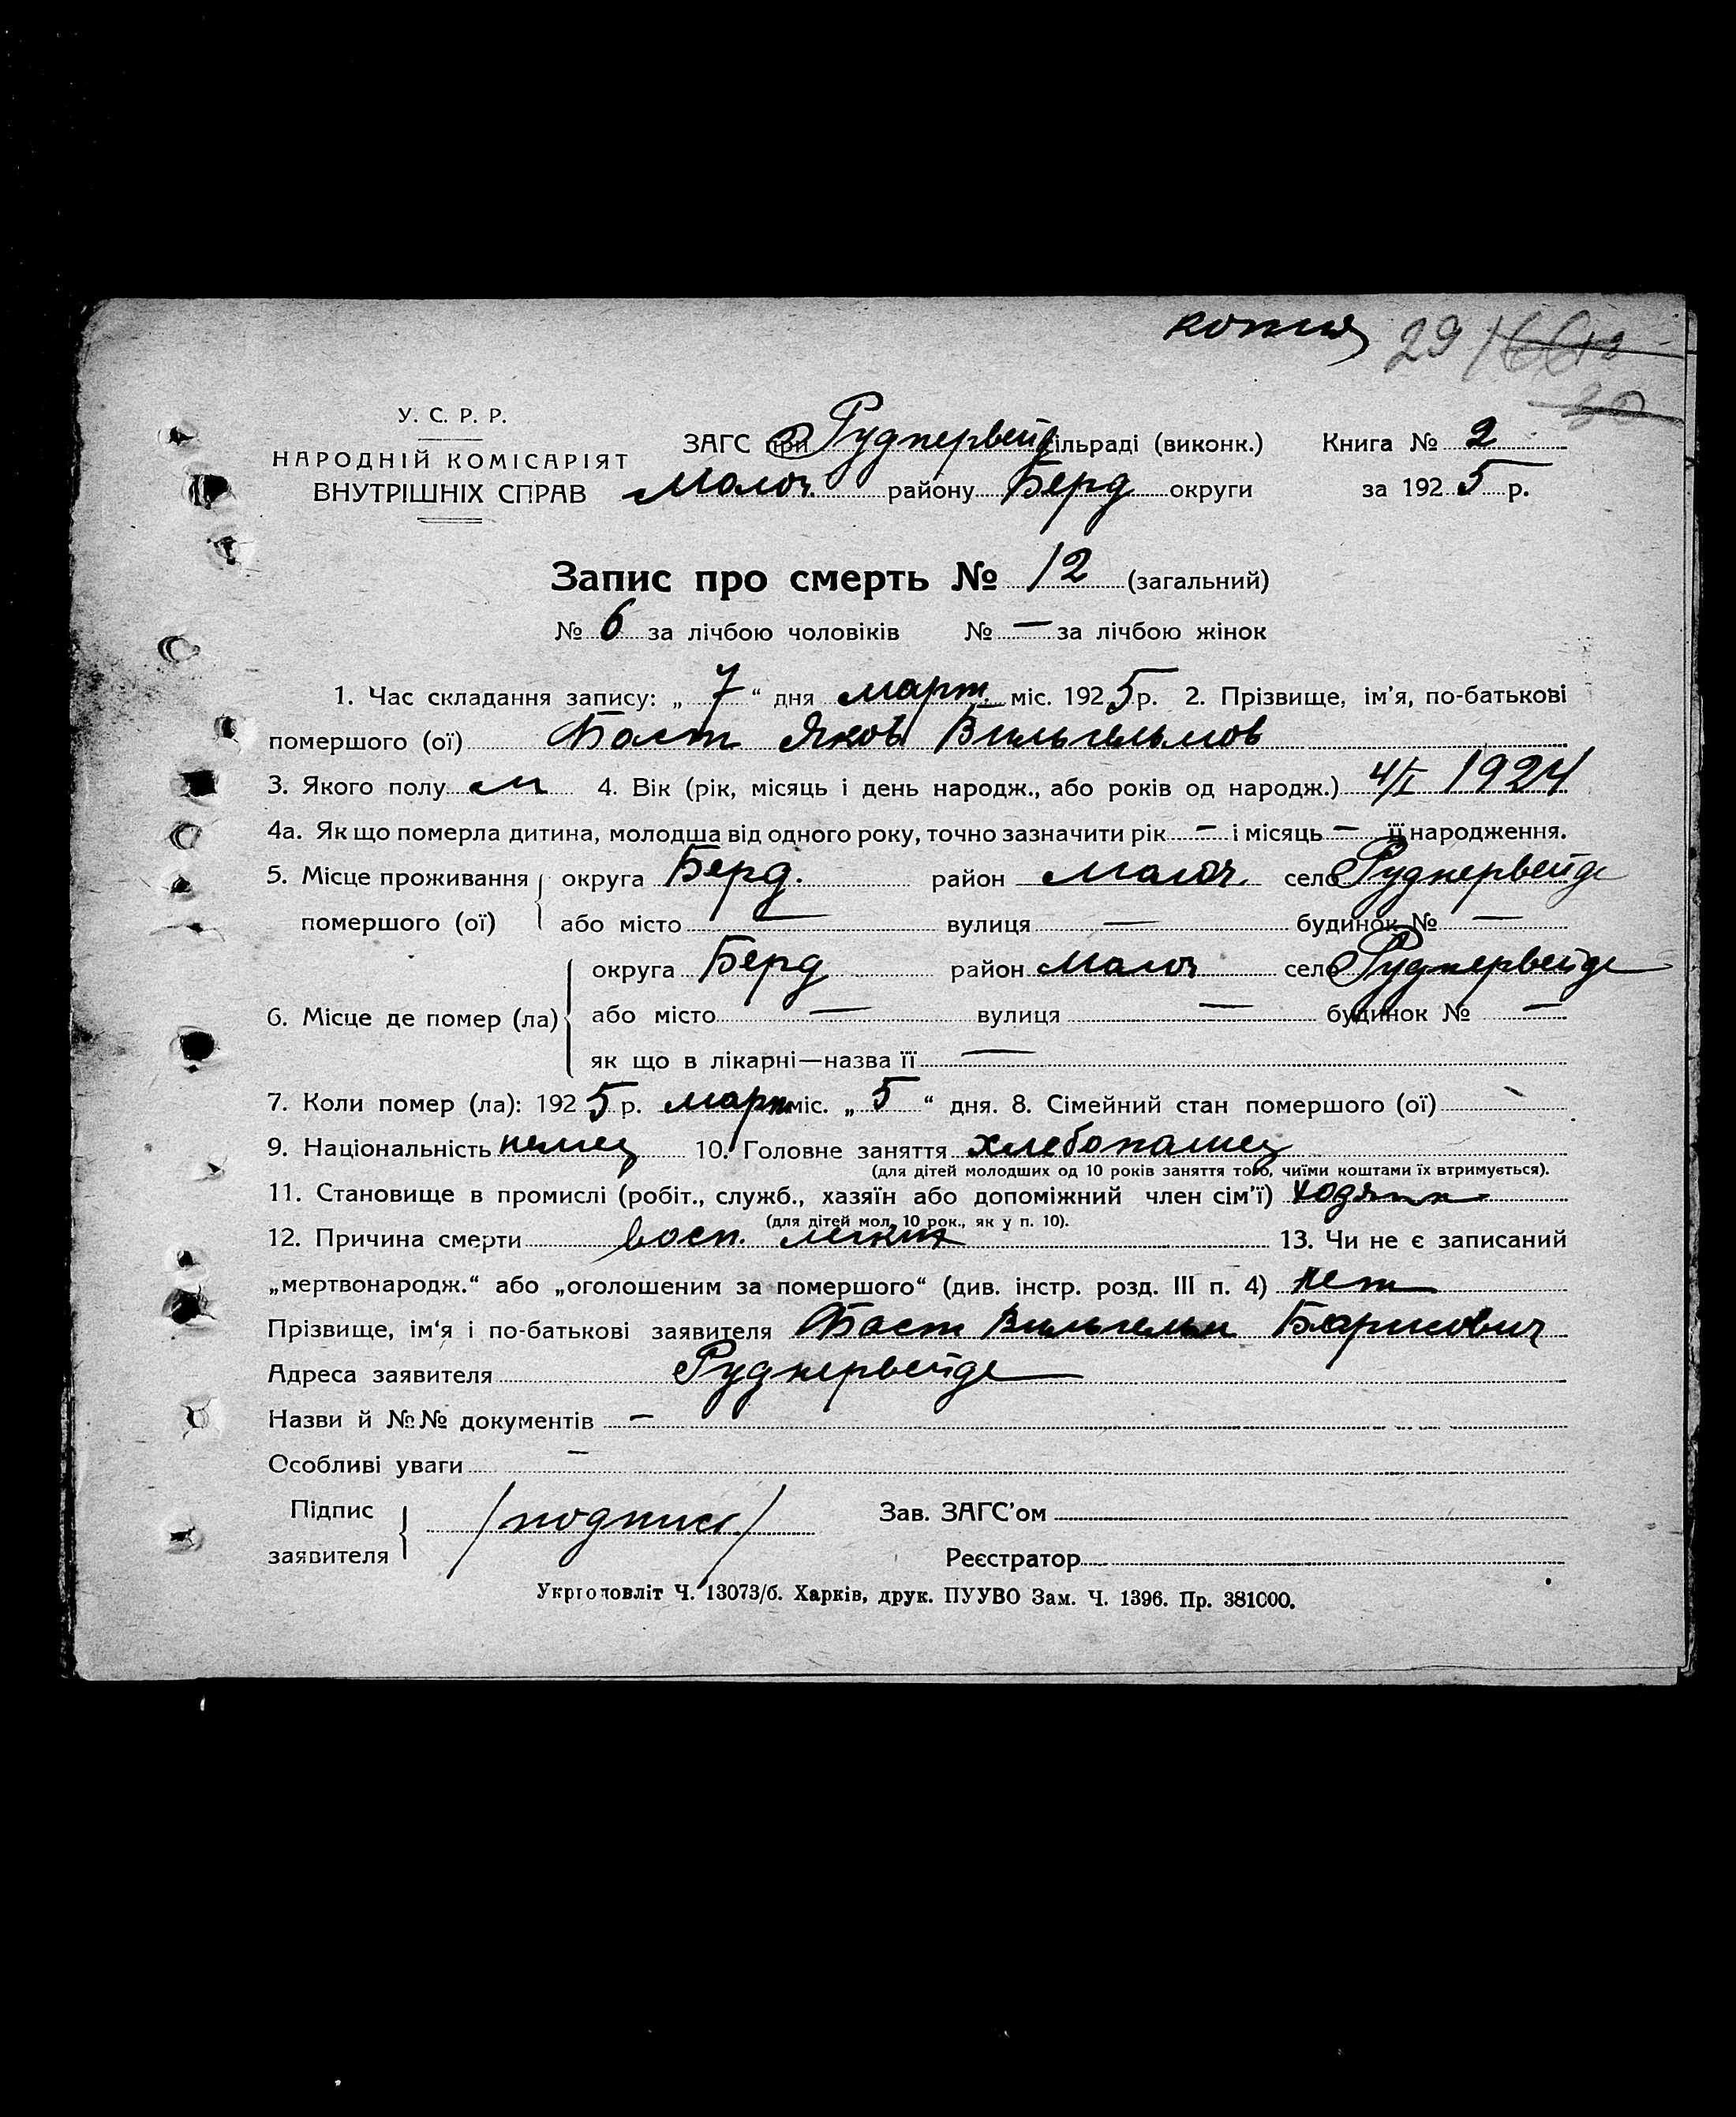 копия 29
У. С. Р. Р.
НАРОДНІЙ КОМІСАРІЯТ
ВНУТРІШНІХ СПРАВ
ЗАГС при Руднервейд сільраді (виконк.) Книга № 2
Молоч. району Берд округи за 1925 р.
Запис про смерть № 12 (загальний)
№ 6 за лічбою чоловіків № — за лічбою жінок
1. Час складання запису: „ 7 “ дня март. міс. 1925 р. 2. Прізвище, ім'я, по-батькові
помершого (ої) Баст Яков Вильгельмов
3. Якого полу м 4. Вік (рік, місяць і день народж., або років од народж.) 4/I 1924
4а. Як що померла дитина, молодша від одного року, точно зазначити рік — і місяць — її народження.
5. Місце проживання помершого (ої) округа Берд. район Молоч. село Руднервейде
або місто — вулиця — будинок № —
6. Місце де помер (ла) округа Берд район Молоч село Руднервейде
або місто — вулиця — будинок № —
як що в лікарні—назва її —
7. Коли помер (ла): 1925 р. март міс. „ 5 “ дня. 8. Сімейний стан помершого (ої)
9. Національність немец 10. Головне заняття хлебопашец
(для дітей молодших од 10 років заняття того, чиїми коштами їх втримується).
11. Становище в промислі (робіт., служб., хазяїн або допоміжний член сім'ї)
(для дітей мол. 10 рок., як у п. 10).
12. Причина смерти восп. легких 13. Чи не є записаний
„мертвонародж.“ або „оголошеним за помершого“ (див. інстр. розд. III п. 4) нет
Прізвище, ім'я і по-батькові заявителя Баст Вильгельм
Адреса заявителя Руднервейде
Назви й №№ документів —
Особливі уваги —
Підпис заявителя /подпись/ Зав. ЗАГС'ом
Реєстратор
Укрголовліт Ч. 13073/б. Харків, друк. ПУУВО Зам. Ч. 1396. Пр. 381000.